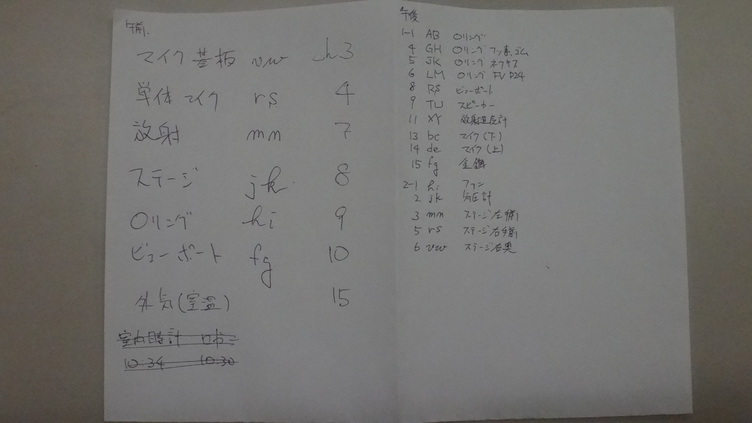 午前.
マイク基板 vw 3
単体マイク rs 4
放射 mn 7
ステージ jk 8
Oリング hi 9
ビューポート fg 10
外気(室温) 15
室内時計
10:34 10:30
午後
1-1 AB Oリング
4 GH Oリング フッ素ゴム
5 JK Oリング
6 LM Oリング
8 RS ビューポート
9 TU スピーカー
11 XY 放射温度計
13 bc マイク(下)
14 de マイク(上)
15 fg
2-1 hi ファン
2 jk
3 mn ステージ左
5 rs ステージ右
6 vw ステージ右奥